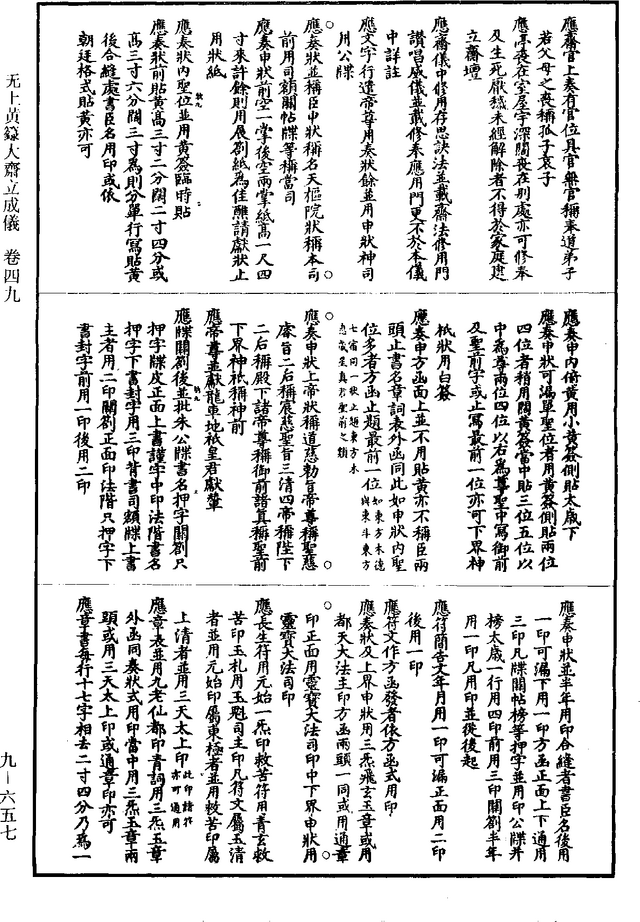 應齋官上奏有官位具官無官稱奉道弟子
若父母之喪稱孤子哀子
應停喪在室屋宇深闊喪在別處亦可修奉
及生死厭穢未經解除者不得於家庭建
立齋壇
應齋儀中修用存思訣法並載齋法修用門
讚唱威儀並載修奉應用門更不於本儀
中詳註
應文字行遣帝尊用奏狀餘並用申狀神司
用公牒
應奏狀並稱臣申狀稱名天樞院狀稱本司
前用司額關帖牒等稱當司
應奏申狀前空一掌後空兩掌紙高一尺四
寸來許餘則用展劄紙為佳醮請獻狀止
用狀紙
應奏狀內聖位並用黃簽臨時貼
應奏狀前貼黃高三寸二分闊二寸四分或
高三寸六分闊三寸為則分單行寫貼黃
後合縫處書臣名用印或依
朝廷格式貼黃亦可
應奏申內倚黃用小黃簽側貼太歲下
應奏申狀可漏單聖位者用黃簽側貼兩位
四位者稍用闊黃簽當中貼三位五位以
中為尊兩位四位以右為尊聖中寫御前
及聖前字或止寫最前一位亦可下界神
祇狀用白簽
應奏申方函面上並不用貼黃亦不稱臣兩
頭止書名章詞表外函同此如申狀內聖
位多者方函止題最前一位如東方木德與東斗東方
七宿同一狀止題東方木
德歲星真君聖前之類
應奏申狀上帝狀稱道慈勑旨帝尊稱聖慈
睿旨二后稱宸慈聖旨三清四帝稱陛下
二后稱殿下諸帝尊稱御前諸真稱聖前
下界神祇稱神前
應帝尊並獻龍車地祇皇君獻輦
應牒關劄後並批朱公牒書名押字關劄只
押字牒皮正面上書謹字中印法階書名
押字下書封字用三印背書司額牒上書
主者用二印關劄正面印法階只押字下
書封字前用一印後用二印
應奏申狀並半年用印合縫者書臣名後用
一印可漏下用一印方函正面上下通用
三印凡牒關帖榜等押字並用印公牒并
榜太歲一行用四印前用三印關劄半年
用一印凡用印並從後起
應符簡告文年月用一印可漏正面用二印
後用一印
應符文作方函發者依方函式用印
應奏狀及上界申狀用三炁飛玄玉章或用
都天大法主印方函兩頭一同或用通章
印正面用靈寶大法司印中下界申狀用
靈寶大法司印
應長生符用元始一炁印救苦符用青玄救
苦印玉札用玉尅司主印凡符文屬玉清
者並用元始印屬東極者並用救苦印屬
上清者並用三天太上印此印諸符亦可通用
應章表並用九老仙都印青詞用三炁玉章
外函同奏狀式用印當中用三炁玉章兩
頭或用三天太上印或通章印亦可
應章書每行十七字相去二寸四分乃為一
无上黃籙大齋立成儀　卷四九
九—六五七